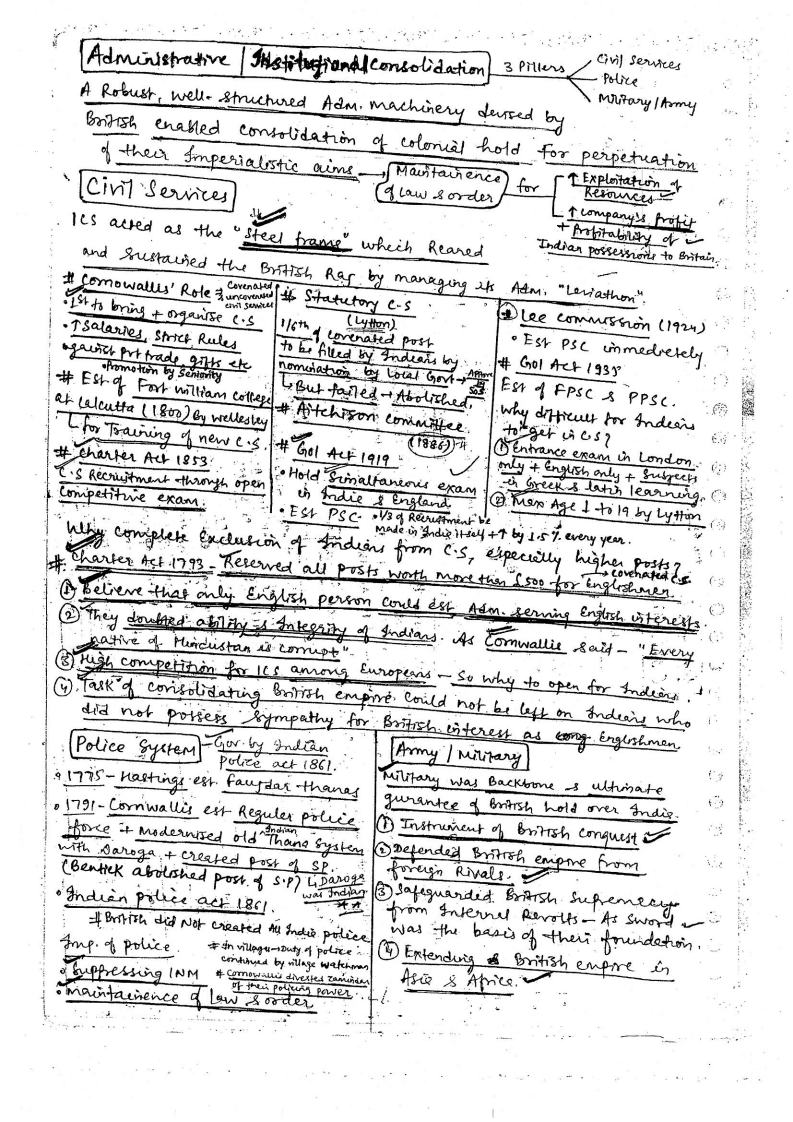 Administrative / Institutional Consolidation
3 Pillers
Civil Services
Police
Military / Army
A Robust, well-structured Adm. machinery devised by
British enabled consolidation of colonial hold for perpetuation
of their Imperialistic aims → Maintainence
of law & order
for
↑ Exploitation of
Resources
↑ company's profit
+ Profitability of
Indian possessions to Britain.
Civil Services
ICS acted as the "steel frame" which Reared
and sustained the British Raj by managing its Adm. "Leviathon".
# Cornowallis' Role
Covenated
& uncovenated
civil services
• 1st to bring + organise C.S
• ↑ Salaries, Strict Rules
against Pvt trade, gifts etc
• Promotion by Seniority
# Est of Fort William College
at Calcutta (1800) by Wellesley
for Training of new C.S.
# Charter Act 1853
C.S Recruitment through open
competitive exam.
# Statutory C-S
(Lytton)
1/6th of covenated post
to be filled by Indians by
nomination by Local Govt →
But failed → Abolished.
# Aitchison Committee
(1886)
# GOI Act 1919
• Hold Simultaneous exam
in India & England
• Est PSC
• 1/3 of Recruitment be
made in India itself + ↑ by 1.5% every year.
# Lee commission (1924)
• Est PSC immediately
# GOI Act 1935
Est of FPSC & PPSC.
Why difficult for Indians
to get in C.S?
① Entrance exam in London
only + English only + Subjects
in Greek & latin learning.
② Max Age ↓ to 19 by Lytton
Why complete Exclusion of Indians from C.S, especially higher posts?
→ covenated C.S
# Charter Act 1793 - Reserved all posts worth more than £500 for Englishmen
① Believe that only English person could est Adm. serving English interests.
② They doubted ability & Integrity of Indians. As Cornwallis said - "Every
native of Hindustan is corrupt"
③ High competition for ICS among Europeans - So why to open for Indians.
④ Task of consolidating British empire could not be left on Indians who
did not possess sympathy for British interest as Englishmen
Police System
Gov. by Indian
Police act 1861.
• 1775 - Hastings est. faujdar thanas
• 1791 - Cornwallis est Regular police
force + Modernised old Indian Thana System
with Daroga + created post of SP.
(Bentick abolished post of S.P)
Daroga
was Indian
• Indian police act 1861
# British did Not created All India police
Imp. of police
• Suppressing INM
• Maintainence of law & order
# In villages → Duty of police
continued by village watchman
# Cornowallis divested zamindar
of their policing power.
Army / Military
Military was Backbone & ultimate
gurantee of British hold over India.
① Instrument of British conquest
② Defended British empire from
foreign Rivals.
③ Safeguarded British Supremacy
from Internal Revolts - As sword
was the basis of their foundation.
④ Extending British empire in
Asia & Africa.